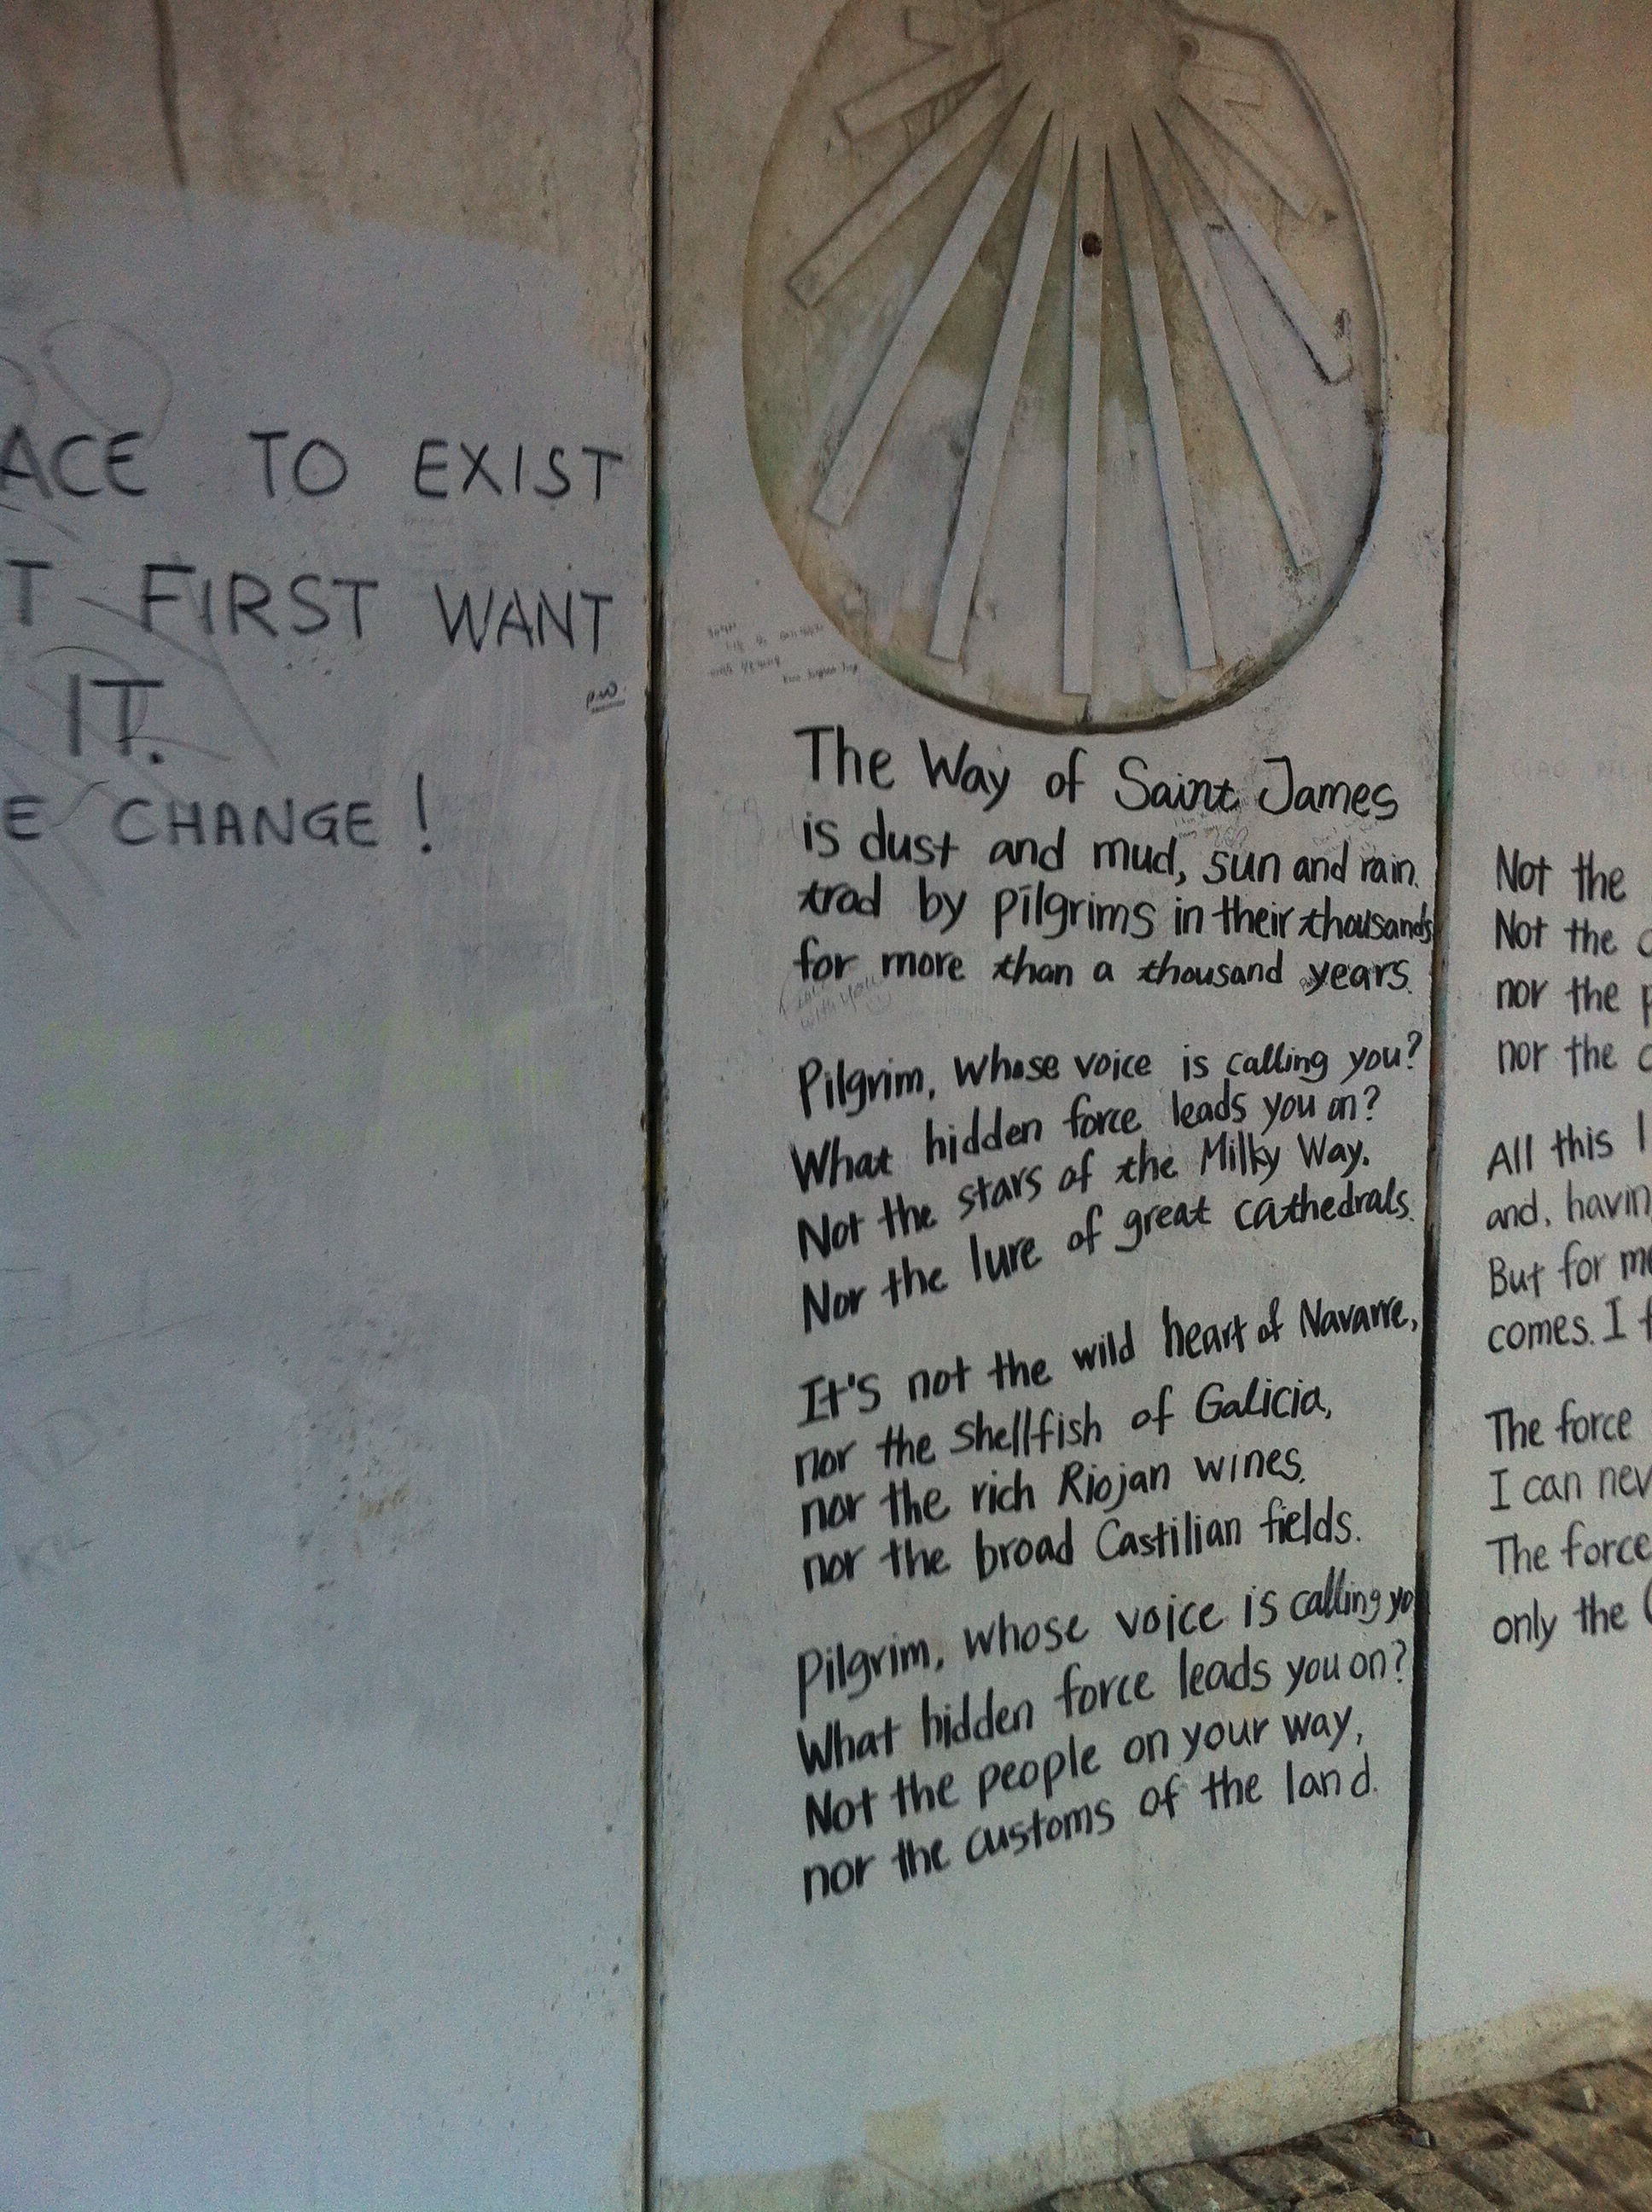 ACE TO EXIST
T FIRST WANT
IT.
E CHANGE!
The Way of Saint James
is dust and mud, sun and rain.
trod by pilgrims in their thousands
for more than a thousand years.
Pilgrim, whose voice is calling you?
What hidden force leads you on?
Not the stars of the Milky Way.
Nor the lure of great cathedrals.
It's not the wild heart of Navarre,
nor the shellfish of Galicia,
nor the rich Riojan wines.
nor the broad Castilian fields.
Pilgrim, whose voice is calling yo
What hidden force leads you on?
Not the people on your way,
nor the customs of the land.
Not the
Not the
nor the
nor the
All this I
and, havin
But for me
comes. I
The force
I can nev
The force
only the